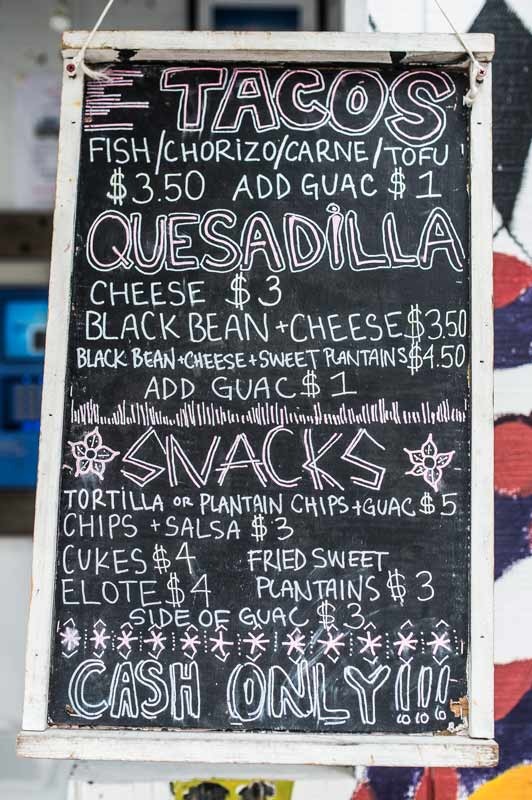 TACOS
FISH/CHORIZO/CARNE/TOFU
$3.50 ADD GUAC $1
QUESADILLA
CHEESE $3
BLACK BEAN + CHEESE $3.50
BLACK BEAN + CHEESE + SWEET PLANTAINS $4.50
ADD GUAC $1
SNACKS
TORTILLA OR PLANTAIN CHIPS + GUAC $5
CHIPS + SALSA $3
CUKES $4
ELOTE $4
FRIED SWEET
PLANTAINS $3
SIDE OF GUAC $3
CASH ONLY!!!